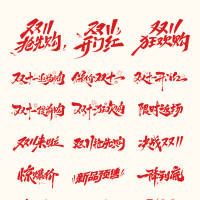 双11
抢先购
双11
开门红
双11
狂欢购
双十一抢先购
保价双十一
双十一开门红
双十一提前购
双十一狂欢购
限时返场
双11来啦
双11抢先购
决战双11
惊爆价
新品预售
一降到底